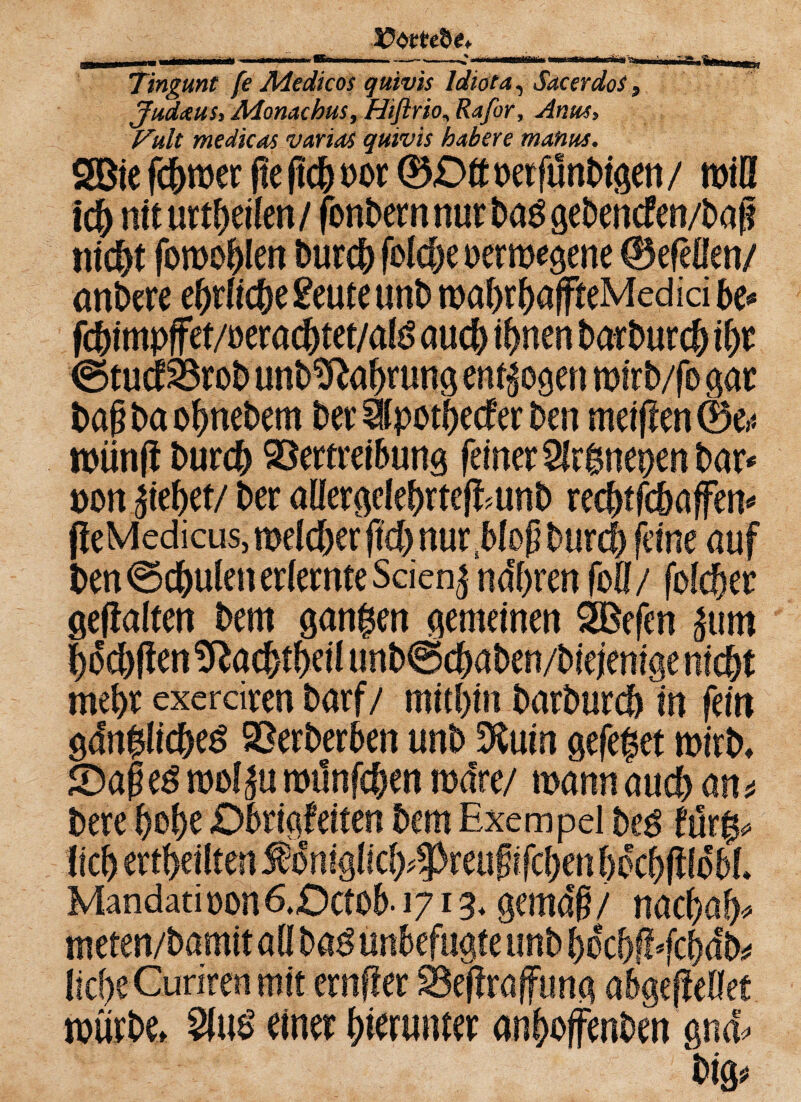 Vorrede.
Tingunt se Medicos quivis Idiota, Sacerdos,
Judæus, Monachus, Histrio, Rasor, Anus,
Vult medicas varias quivis habere manus.
Wie schwer sie sich vor GOtt versündigen / will
ich nit urtheilen / sondern nur das gedencken/daß
nicht sowohlen durch solche verwegene Gesellen/
andere ehrliche Leute und wahrhaffte Medici be-
schimpffet/verachtet/als auch ihnen dardurch ihr
Stuck Brod und Nahrung entzogen wird/so gar
daß da ohnedem der Apothecker den meisten Ge-
wünst durch Vertreibung seiner Artzneyen dar-
von ziehet/ der allergelehrtest-und rechtschaffen-
ste Medicus, welcher sich nur bloß durch seine auf
den Schulen erlernte Scienz nähren soll / solcher
gestalten dem gantzen gemeinen Wesen zum
höchsten Nachtheil und Schaden/diejenige nicht
mehr exerciren darf / mithin dardurch in sein
gäntzliches Verderben und Ruin gesetzet wird.
Daß es wol zu wünschen wäre/ wann auch an-
dere hohe Obrigkeiten dem Exempel des kürtz-
lich ertheilten Königlich-Preußischen höchstlöbl.
Mandati von 6. Octob. 1713. gemäß / nachah-
meten/damit all das unbefugte und höchst-schäd-
liche Curiren mit ernster Bestraffung abgestellet
würde. Aus einer hierunter anhoffenden gnä-
dig-